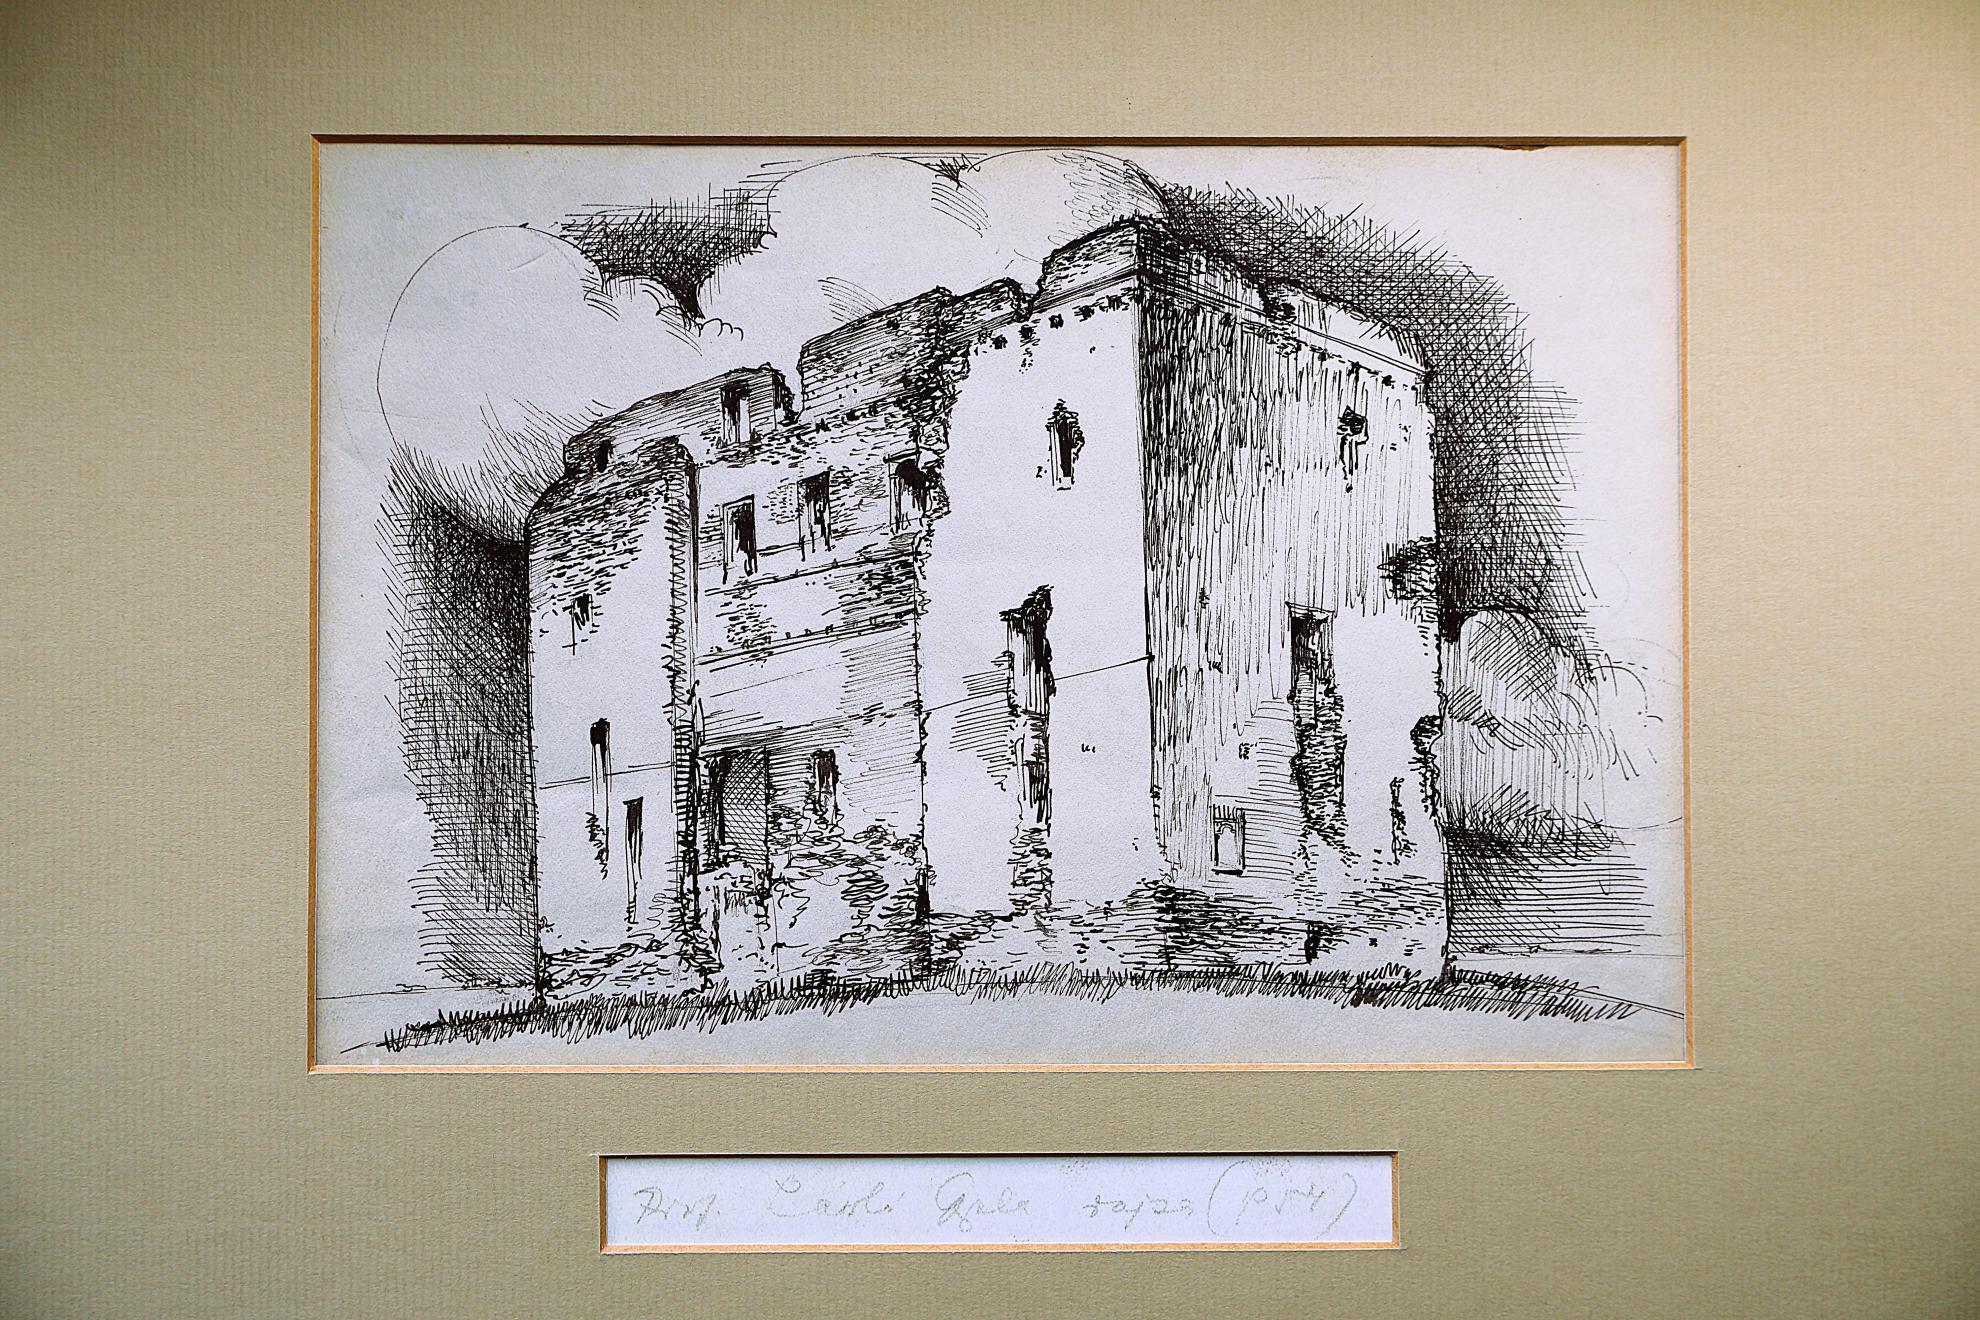 Prof. László Gyula rajza (1954)